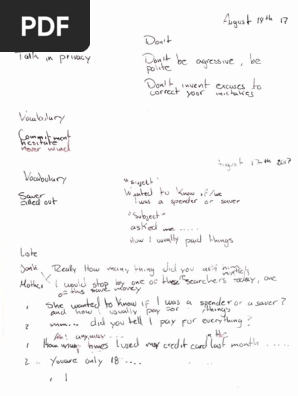 PDF
August 18th 17
Don't
Talk in privacy
Don't be agressive, be
polite
Don't invent excuses to
correct your mistakes
Vocabulary
Commitment
hesitate
never mind
August 17th 2017
Vocabulary
"Subject"
Saver
Wanted to know if/we
filled out
I was a spender or saver
"Subject"
asked me .....
How I usually paid things
Late
Really How many thing did you ask
Mother I would stop by one of these searchers today, one
of this save money
1 She wanted to know if I was a spender or a saver?
and how I usually pay for things
2 mmm... did you tell I pay for everything?
1 How many times I used my credit card last month ......
2 .. You are only 18 .... .....
, I